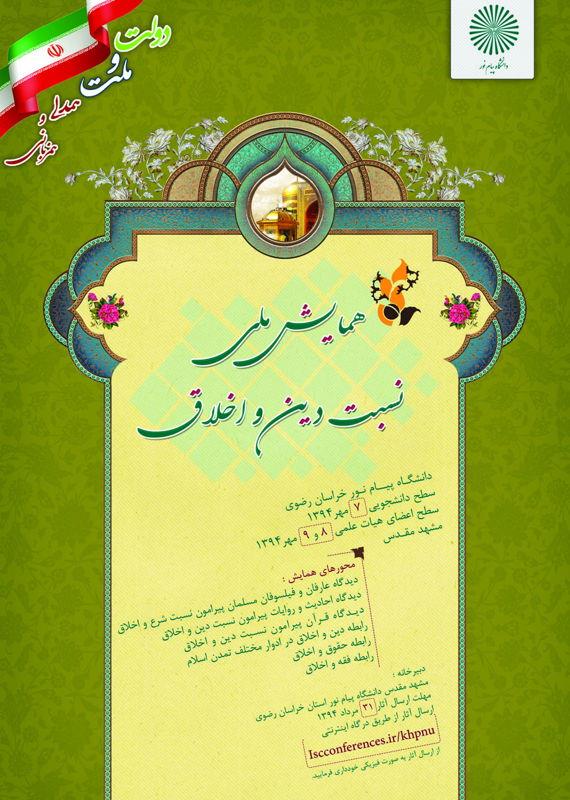 دولت
و
ملت
همدلی و
همزبانی
دانشگاه پیام نور
همایش ملی
نسبت دین و اخلاق
دانشگاه پیام نور خراسان رضوی
سطح دانشجویی ۷ مهر ۱۳۹۴
سطح اعضای هیات علمی ۸ و ۹ مهر ۱۳۹۴
مشهد مقدس
محورهای همایش :
دیدگاه عارفان و فیلسوفان مسلمان پیرامون نسبت شرع و اخلاق
دیدگاه احادیث و روایات پیرامون نسبت دین و اخلاق
دیدگاه قرآن پیرامون نسبت دین و اخلاق
رابطه دین و اخلاق در ادوار مختلف تمدن اسلام
رابطه حقوق و اخلاق
رابطه فقه و اخلاق
دبیرخانه :
مشهد مقدس دانشگاه پیام نور استان خراسان رضوی
مهلت ارسال آثار ۳۱ مرداد ۱۳۹۴
ارسال آثار از طریق درگاه اینترنتی
Iscconferences.ir/khpnu
از ارسال آثار به صورت فیزیکی خودداری فرمایید.